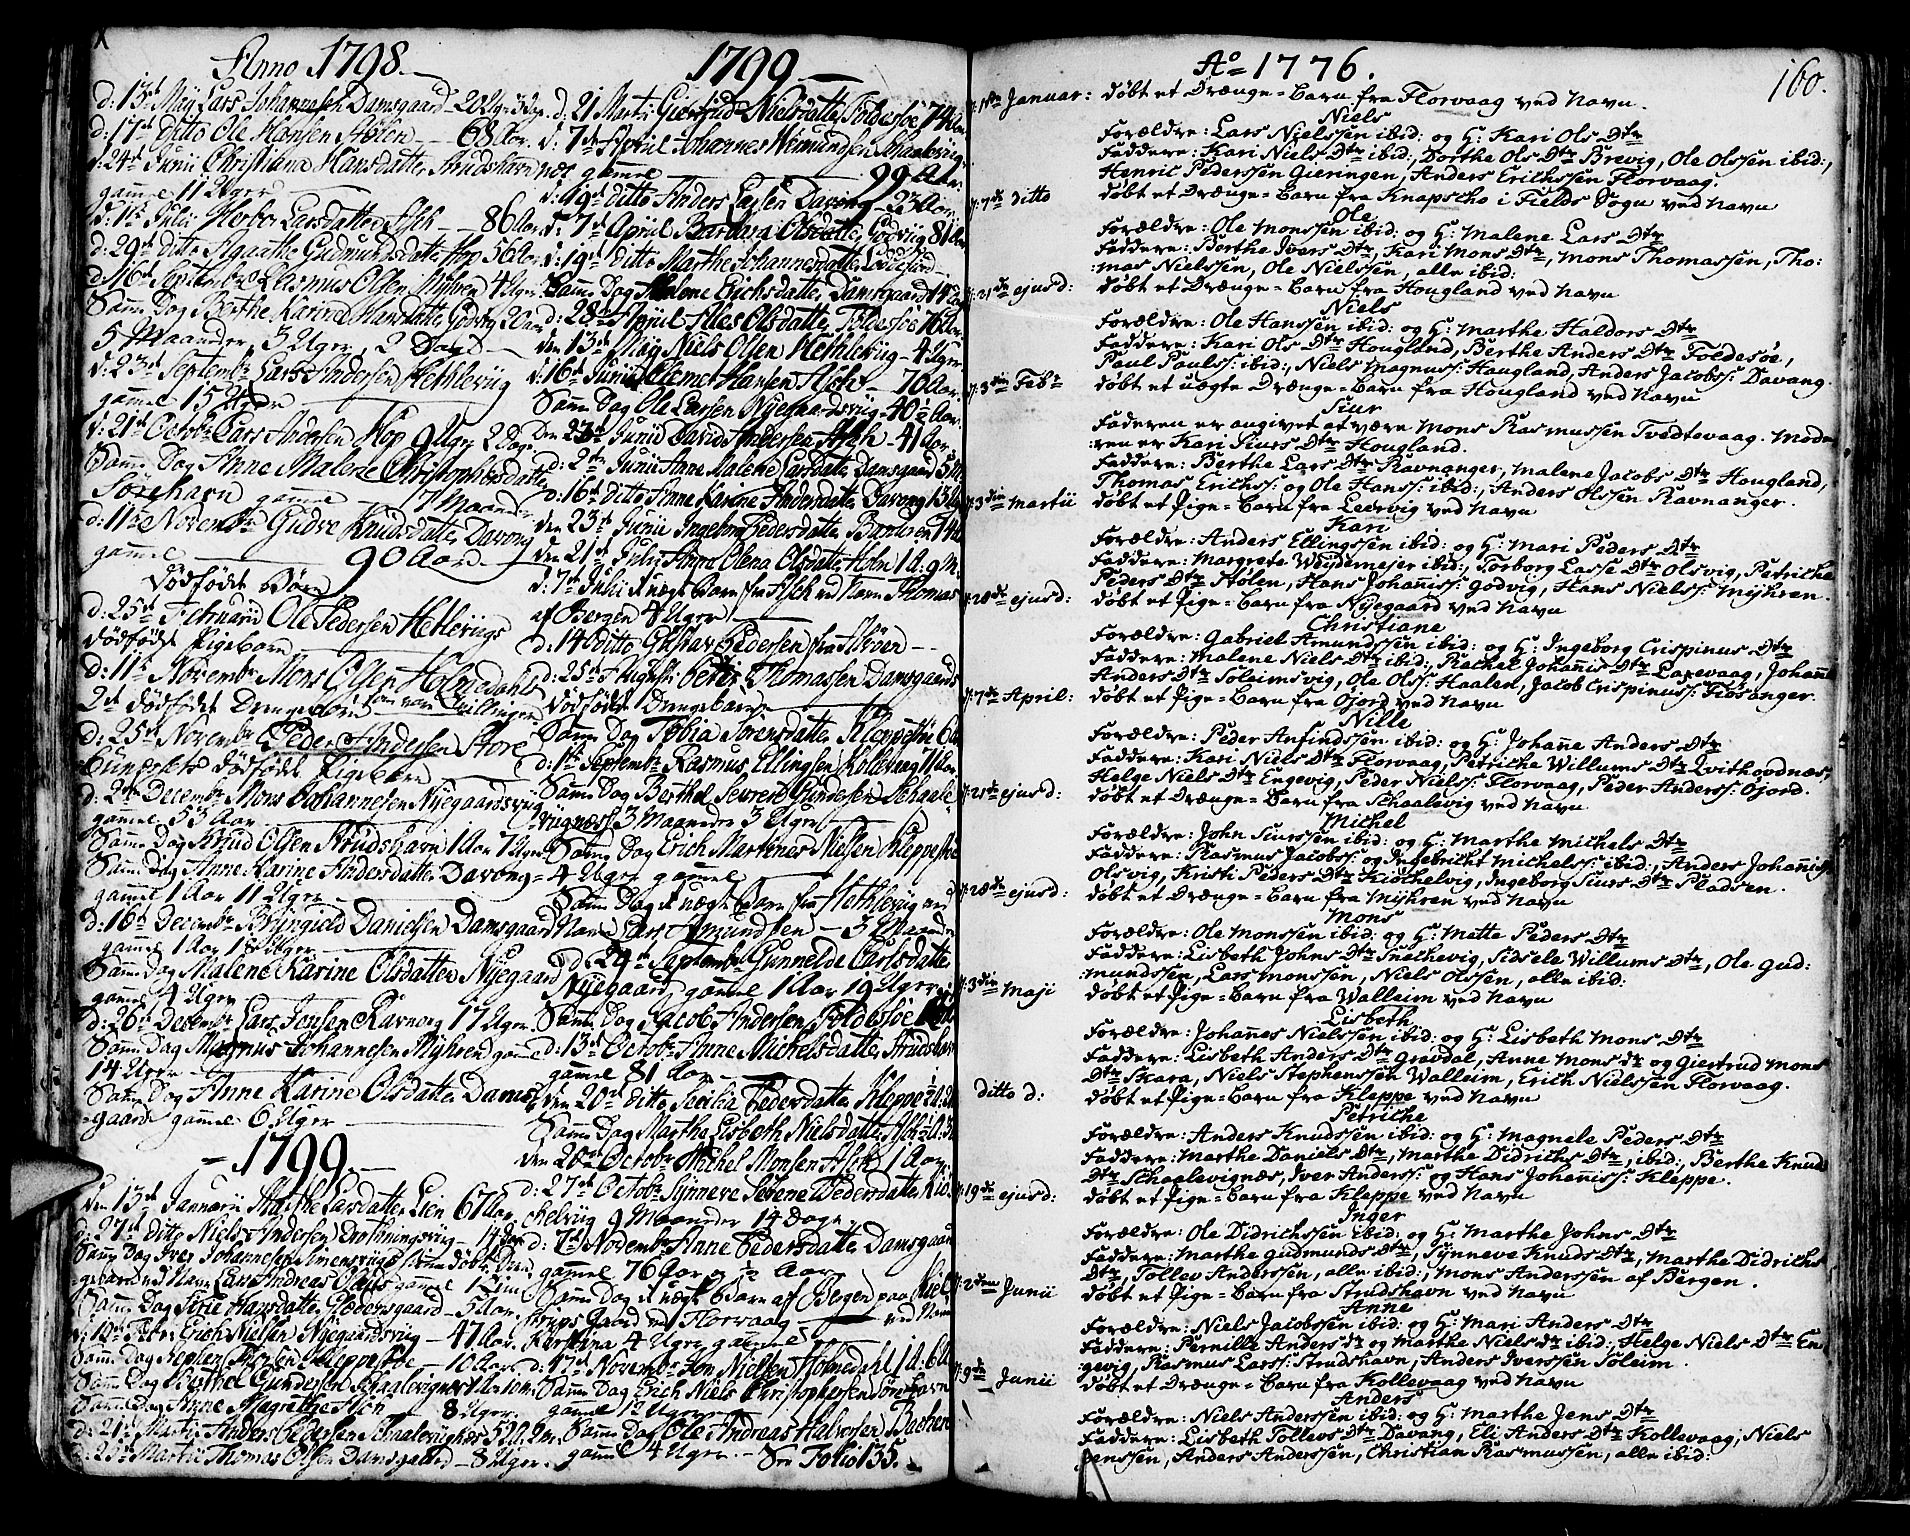 Anno 1798.
d: 13de May Lars Johannesen Damsgaard 20 Uger 3 Dage
d: 17de ditto Ole Hansen Asken 68 Aar.
d: 24de Junii Christiana Hansdatter Strudshavn
gamel 11 Uger
d: 1te Julii Larsdatter Ask 86 Aar
d: 29de ditto Agaathe Gudmundsdatter Hop 56 Aar
d: 16de Septembr Rasmus Olsen Myhren 4 Uger
Samme Dag Berthe Karine Hansdatter Godvig
5 Maaneder, 3 Uger, 2 Dage
d: 23de Septembr Lars Andersen Hethleviig
gamel 15 Uger
d: 21de Octobr Lars Andersen Hop 9 Uger 2 Dage
Samme Dag Anne Malene Christophersdatter
Sörehavn gamel 17 Maaneder
d: 11te Novembr Gudve Knudsdatter Davong
gamel 90 Aar.
Dödfödte Börn
d: 25de Februarii Ole Pedersen Hetlevigs
dödfödt Pigebarn
d: 11te Novembr Mons Olsen Holmedahls
2de dödfödt Drengebörn som var Tvillinger
d: 25de Novembr Peder Andersen Store
dödfödt Pigebarn
d: 2den Decembr Mons Johannesen Nyegaardsviig
gamel 53 Aar
Samme Dag Knud Olsen Strudshavn 1 Aar 7 Uger
Samme Dag Anne Karine Andersdatter Davong
gamel 1 Aar 11 Uger
d: 16de Decembr Bryngield Danielsen Damsgaard
gamel 1 Aar 18 Uger
Samme Dag Malene Karine Olsdatter Nyegaard
gamel 4 Uger
d: 26de Decembr Lars Jensen Ravnong 17 Uger
Samme Dag Magnus Johannesen Myhren gamel
14 Uger
Samme Dag Anne Karine Olsdatter Dams
=gaard gamel 6 Uger
1799.
den 13de Januarii Marthe Larsdatter Lien 67 Aar
d: 27de ditto Niels Andersen Drothningsviig 14 Dage
Samme Dag Iver Johannesen
ved Navn Lars Andreas gamel
Samme Dag Sirie Hansdatter Gledersgaard 5 Aar
d: 10de Febr. Erich Nielsen Nyegaardsviig 47 Aar
Samme Dag Kleppestöe 10 Aar
Samme Dag Berthel Gundersen Schaalevignes
Samme Dag Anne Magrethe Ask 8 Uger
d: 21de Martii Anders Pedersen
d: 25de Martii Thomas Olsen Damsgaard 8 Uger.
1799
d: 21 Marti: Giertrud Nielsdatter Foldesöe 74 Aar
d: 7de April Johannes Nemundsen Schaalevig
gamel 99 Aar.
d: 19de ditto Anders Davong 23 Aar
d: 7de April Barbara Olsdatter Godviig 81 Aar
d: 19de ditto Marthe Johannesdatter Loddefiord
Samme Dag Malene Erichsdatter Damsgaard
d: 28de April Alles Olsdatter Foldesöe 16 Aar
den 13de May Niels Olsen Hethleviig 4 Uger
d: 16de Junii Clemet Hansen Ask 70 Aar.
Samme Dag Ole Larsen Nyegaardsviig 40½ Aar.
Den 23de Junii David Andersen Ask 41 Aar
d: 2den Junii Anne Malene Larsdatter Damsgaard
d: 16de ditto Anne Karine Andersdatter Davong
den 23de Junii Ingeborg Pedersdatter
den 21de Julii Anne Olena Olsdatter Holm 1 A. 9 M.
d: 7de Julii et uægte Barn fra Ask ved Navn Thomas
af Bergen 4 Uger
d: 14 ditto Gustav Pedersen fra Alvöen
d: 25de August: Thomassen Damsgaards
dödfödt Drengebarn
Samme Dag Tobia Sörensdatter Kleppestöe
d: 1te Septembr Rasmus Ellingsen Kollevaag 71 Aar
Samme Dag Berthel Severin Gundersen Schaale=
viignes 3 Maaneder 3 Uger
Samme Dag Erich Martinus Nielsen Kleppestöe
4 Uger gamel
Samme Dag et uægte Barn fra Hethleviig ved
Navn Lars Amundsen 3 Maaneder
d: 29de Septembr Gunnelde Carlsdatter
Nyegaard gamel 1 Aar 19 Uger
Samme Dag Jacob Andersen Foldesöe
d: 13de Octobr Anne Michelsdatter Strudshavn
gamel 81 Aar
den 20de ditto Secilia Pedersdatter Kleppe
Samme Dag Martha Lisbeth Nielsdatter Ask
den 20de Octobr Michel Monsen Ask 1 Aar
d: 27de Octobr Synneve Severine Pedersdatter Kiö=
chelviig 9 Maaneder 14 Dage
d: 1te Novembr Anne Pedersdatter Damsgaard
gamel 76 Aar
Samme Dag et uægte Barn af Bergen paa
Gaard ved Florvaag ved Navn
Karstina 4 Uger gamel
d: 17de Novembr Jon Nielsen Holmedahl
Samme Dag Erich Niels Christophersen Sörehavn
gamel 12 Uger
Samme Dag Ole Andreas Halvorsen
gamel 4 Uger. See Folio 135.
Ao 1776.
160.
d: 1ste Januar: döbt et Drænge=barn fra Florvaag ved Navn
Niels
Forældre: Lars Nielssen ibid: og H: Kari Ols Dtr
Faddere: Kari Niels Dtr ibid:, Dorthe Ols Dtr Brevig, Ole Olssen ibid:,
Henric Pederssen Gieringen, Anders Erichssen Florvaag.
d: 7de ditto döbt et Drænge=barn fra Knapscho i Fields Sogn ved Navn
Ole
Forældre: Ole Monssen ibid: og H: Malene Lars Dtr
Faddere: Berthe Ivers Dtr, Kari Mons Dtr, Mons Thomassen, Tho:
mas Nielssen, Ole Nielssen, alle ibid:
d: 21de ejusd: döbt et Drænge=barn fra Hougland ved Navn
Niels
Forældre: Ole Hanssen ibid: og H: Marthe Haldors Dtr
Faddere: Kari Ols Dtr Hougland, Berthe Anders Dtr Foldesöe,
Paul Pauls: ibid:, Niels Magnus: Hougland, Anders Jacobs: Davang.
d: 3die Febr döbt et uægte Drænge=barn fra Hougland ved Navn
Siur
Faderen er angivet at være Mons Rasmussen Tvedtevaag. Mode
ren er Kari Siurs Dtr Hougland.
Faddere: Berthe Lars Dtr Ravnanger, Malene Jacobs Dtr Hougland,
Thomas Erichs: og Ole Hans: ibid:, Anders Olssen Ravnanger.
d: 3die Martii döbt et Pige=barn fra Leervig ved Navn
Kari
Forældre: Anders Ellingssen ibid: og H: Mari Peders Dtr
Faddere: Margrete Weydemejer ibid:, Torborg Lasse Dtr Olsvig, Petriche
Peders Dtr Holen, Hans Johannis: Godvig, Hans Niels: Myhren.
d: 28de ejusd: döbt et Pige=barn fra Nyegaard ved Navn
Christiane
Forældre: Gabriel Amundssen ibid: og H: Ingeborg Crispinus Dtr
Faddere: Malene Niels Dtr ibid:, Rachel Johannis Dtr Laxevaag, Johanne
Anders Dtr Soleimsvig, Ole Ols: Haalen, Jacob Crispinus: Flösanger.
d: 7de April: döbt et Pige=barn fra Ojord ved Navn
Nille
Forældre: Peder Anfindssen ibid: og H: Johanne Anders Dtr
Faddere: Kari Niels Dtr Florvaag, Petriche Willums Dtr Qvithovdnæs,
Helge Niels Dtr Engevig, Peder Niels: Florvaag, Peder Anders: Ojord.
d: 21de ejusd: döbt et Drænge=barn fra Schaalevig ved Navn
Michel
Forældre: John Siurssen ibid: og H: Marthe Michels Dtr
Faddere: Rasmus Jacobs: og Ingebricht Michels: ibid:, Anders Johannis:
Olsvig, Kristi Peders Dtr Kiöchelvig, Ingeborg Siurs Dtr Pladsen.
d: 28de ejusd: döbt et Drænge=barn fra Myhren ved Navn
Mons
Forældre: Ole Monssen ibid: og H: Mette Peders Dtr
Faddere: Lisbeth Johns Dtr Snechevig, Sidsele Willums Dtr, Ole Gud:
mundssen, Lars Monssen, Niels Olssen, alle ibid:
d: 3die Maji döbt et Pige=barn fra Walleim ved Navn
Lisbeth
Forældre: Johannes Nielssen ibid: og H: Lisbeth Mons Dtr
Faddere: Lisbeth Anders Dtr Gravdal, Anne Mons dr og Giertrud Mons
Dtr Skara, Niels Stephenssen Walleim, Erich Nielssen Florvaag.
ditto d: döbt et Pige=barn fra Kleppe ved Navn
Petriche
Forældre: Anders Knudssen ibid: og H: Magnele Peders Dtr
Faddere: Marthe Daniels Dtr, Marthe Didrichs Dtr, ibid:, Berthe Knud
Dtr Schaalevignæs, Iver Anders: og Hans Johannis: Kleppe.
d: 19de ejusd: döbt et Pige=barn fra Kleppe ved Navn
Inger
Forældre: Ole Didrichssen ibid: og H: Marthe Johns Dtr
Faddere: Marthe Gudmunds Dtr, Synneve Knuds Dtr, Marthe Didrichs
Dtr, Tollev Anderssen, alle ibid:, Mons Anderssen af Bergen.
d: 2den Junii döbt et Pige=barn fra Strudshavn ved Navn
Anne
Forældre: Niels Jacobssen ibid: og H: Mari Anders Dtr
Faddere: Pernille Anders dr og Marthe Niels dr ibid:, Helge Niels Dtr En
gevig, Rasmus Lars: Strudshavn, Anders Iverssen Soleim.
d: 9de Junii döbt et Drænge=barn fra Kollevaag ved Navn
Anders
Forældre: Niels Anderssen ibid: og H: Marthe Jens Dtr
Faddere: Lisbeth Tollevs Dtr Davang, Eli Anders Dtr Kollevaag, Niels
Jenssen, Anders Anderssen, Christian Rasmussen, alle ibid: